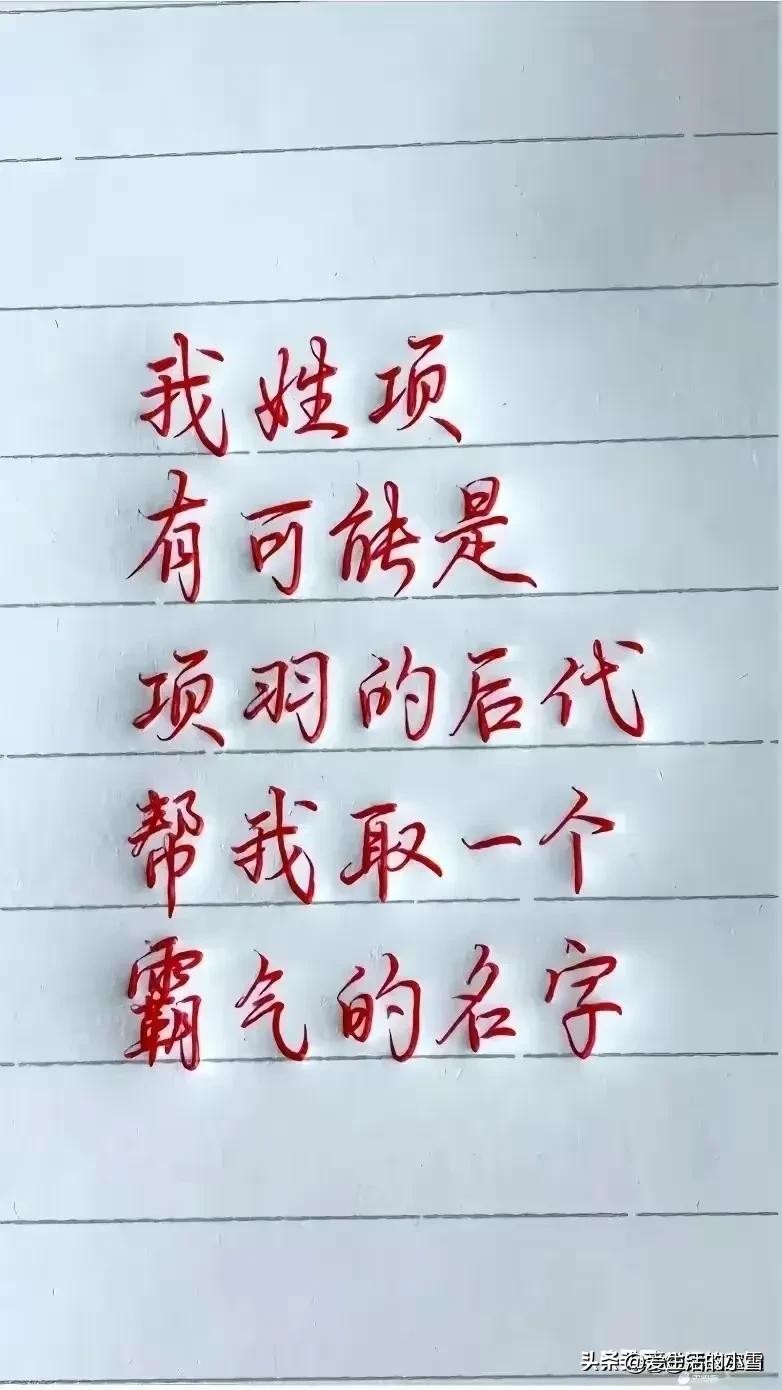 我姓项
有可能是
项羽的后代
帮我取一个
霸气的名字
头条 @爱生活的小雪